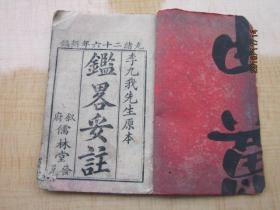 光緒二十六年新鐫
李九我先生原本
鑑畧妥註
叙府
儒林堂發兌